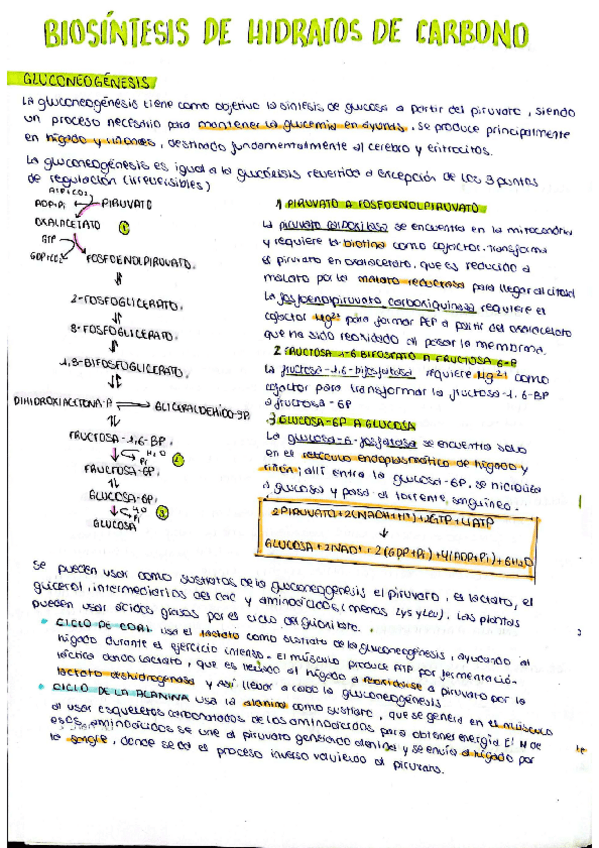 BIOSÍNTESIS DE HIDRATOS DE CARBONO
GLUCONEOGÉNESIS
La gluconeogénesis tiene como objetivo la síntesis de glucosa a partir del piruvato, siendo
un proceso necesario para mantener la glucemia en ayunas. Se produce principalmente
en hígado y riñones, destinado fundamentalmente al cerebro y eritrocitos.
La gluconeogénesis es igual a la glucólisis revertida a excepción de los 3 puntos
de regulación (irreversibles)
ATP+CO2
ADP+Pi PIRUVATO
OXALACETATO 1
GTP
GDP+CO2 FOSFOENOLPIRUVATO
2-FOSFOGLICERATO
3-FOSFOGLICERATO
1,3-BIFOSFOGLICERATO
DIHIDROXIACETONA-P GLICERALDEHIDO-3P
FRUCTOSA-1,6-BP
H2O
Pi 2
FRUCTOSA-6P
GLUCOSA-6P
H2O
Pi 3
GLUCOSA
1 PIRUVATO A FOSFOENOLPIRUVATO
La piruvato carboxilasa se encuentra en la mitocondria
y requiere la biotina como cofactor. Transforma
el piruvato en oxalacetato, que es reducido a
malato por la malato reductasa para llegar al citosol
La fosfoenolpiruvato carboxiquinasa requiere el
cofactor Mg2+ para formar PEP a partir del oxalacetato
que ha sido reoxidado al pasar la membrana.
2 FRUCTOSA 1-6 BIFOSFATO A FRUCTOSA 6-P
La fructosa-1,6-bifosfatasa requiere Mg2+ como
cofactor para transformar la fructosa-1,6-BP
a fructosa-6P
3 GLUCOSA-6P A GLUCOSA
La glucosa-6-fosfatasa se encuentra solo
en el retículo endoplasmático de hígado y
riñón; allí entra la glucosa-6P, se hidroliza
a glucosa y pasa al torrente sanguíneo.
2 PIRUVATO+2(NADH+H+)+2GTP+4ATP
↓
GLUCOSA+2NAD+ + 2(GDP+Pi)+4(ADP+Pi)+6H2O
Se pueden usar como sustratos de la gluconeogénesis el piruvato, el lactato, el
glicerol, intermediarios del CAC y aminoácidos (menos Lys y Leu). Las plantas
pueden usar ácidos grasos por el ciclo del glioxilato.
• CICLO DE CORI usa el lactato como sustrato de la gluconeogénesis, ayudando al
hígado durante el ejercicio intenso. El músculo produce ATP por fermentación
láctica dando lactato, que es llevado al hígado a reoxidarse a piruvato por la
lactato deshidrogenasa y así llevar a cabo la gluconeogénesis
• CICLO DE LA ALANINA usa la alanina como sustrato, que se genera en el músculo
al usar esqueletos carbonatados de los aminoácidos para obtener energía. El N de
esos aminoácidos se une al piruvato generando alanina y se envía al hígado por
la sangre, donde se da el proceso inverso volviendo al piruvato.